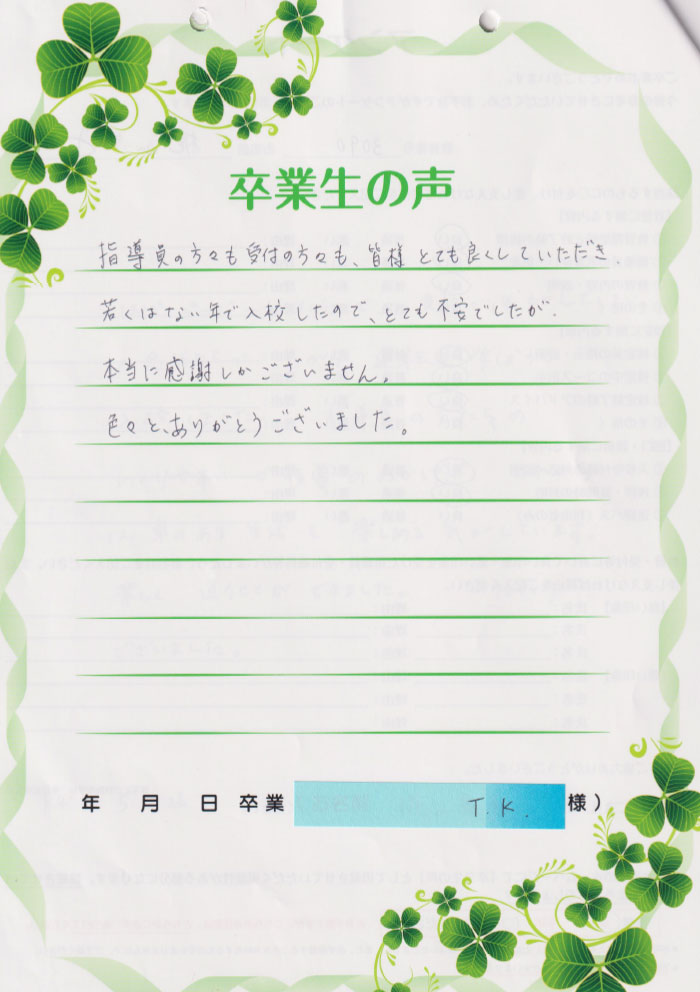 卒業生の声
指導員の方々も受付の方々も、皆様とても良くしていただき、
若くはない年で入校したので、とても不安でしたが、
本当に感謝しかございません。
色々と、ありがとうございました。
年 月 日 卒業 T.K. 様)